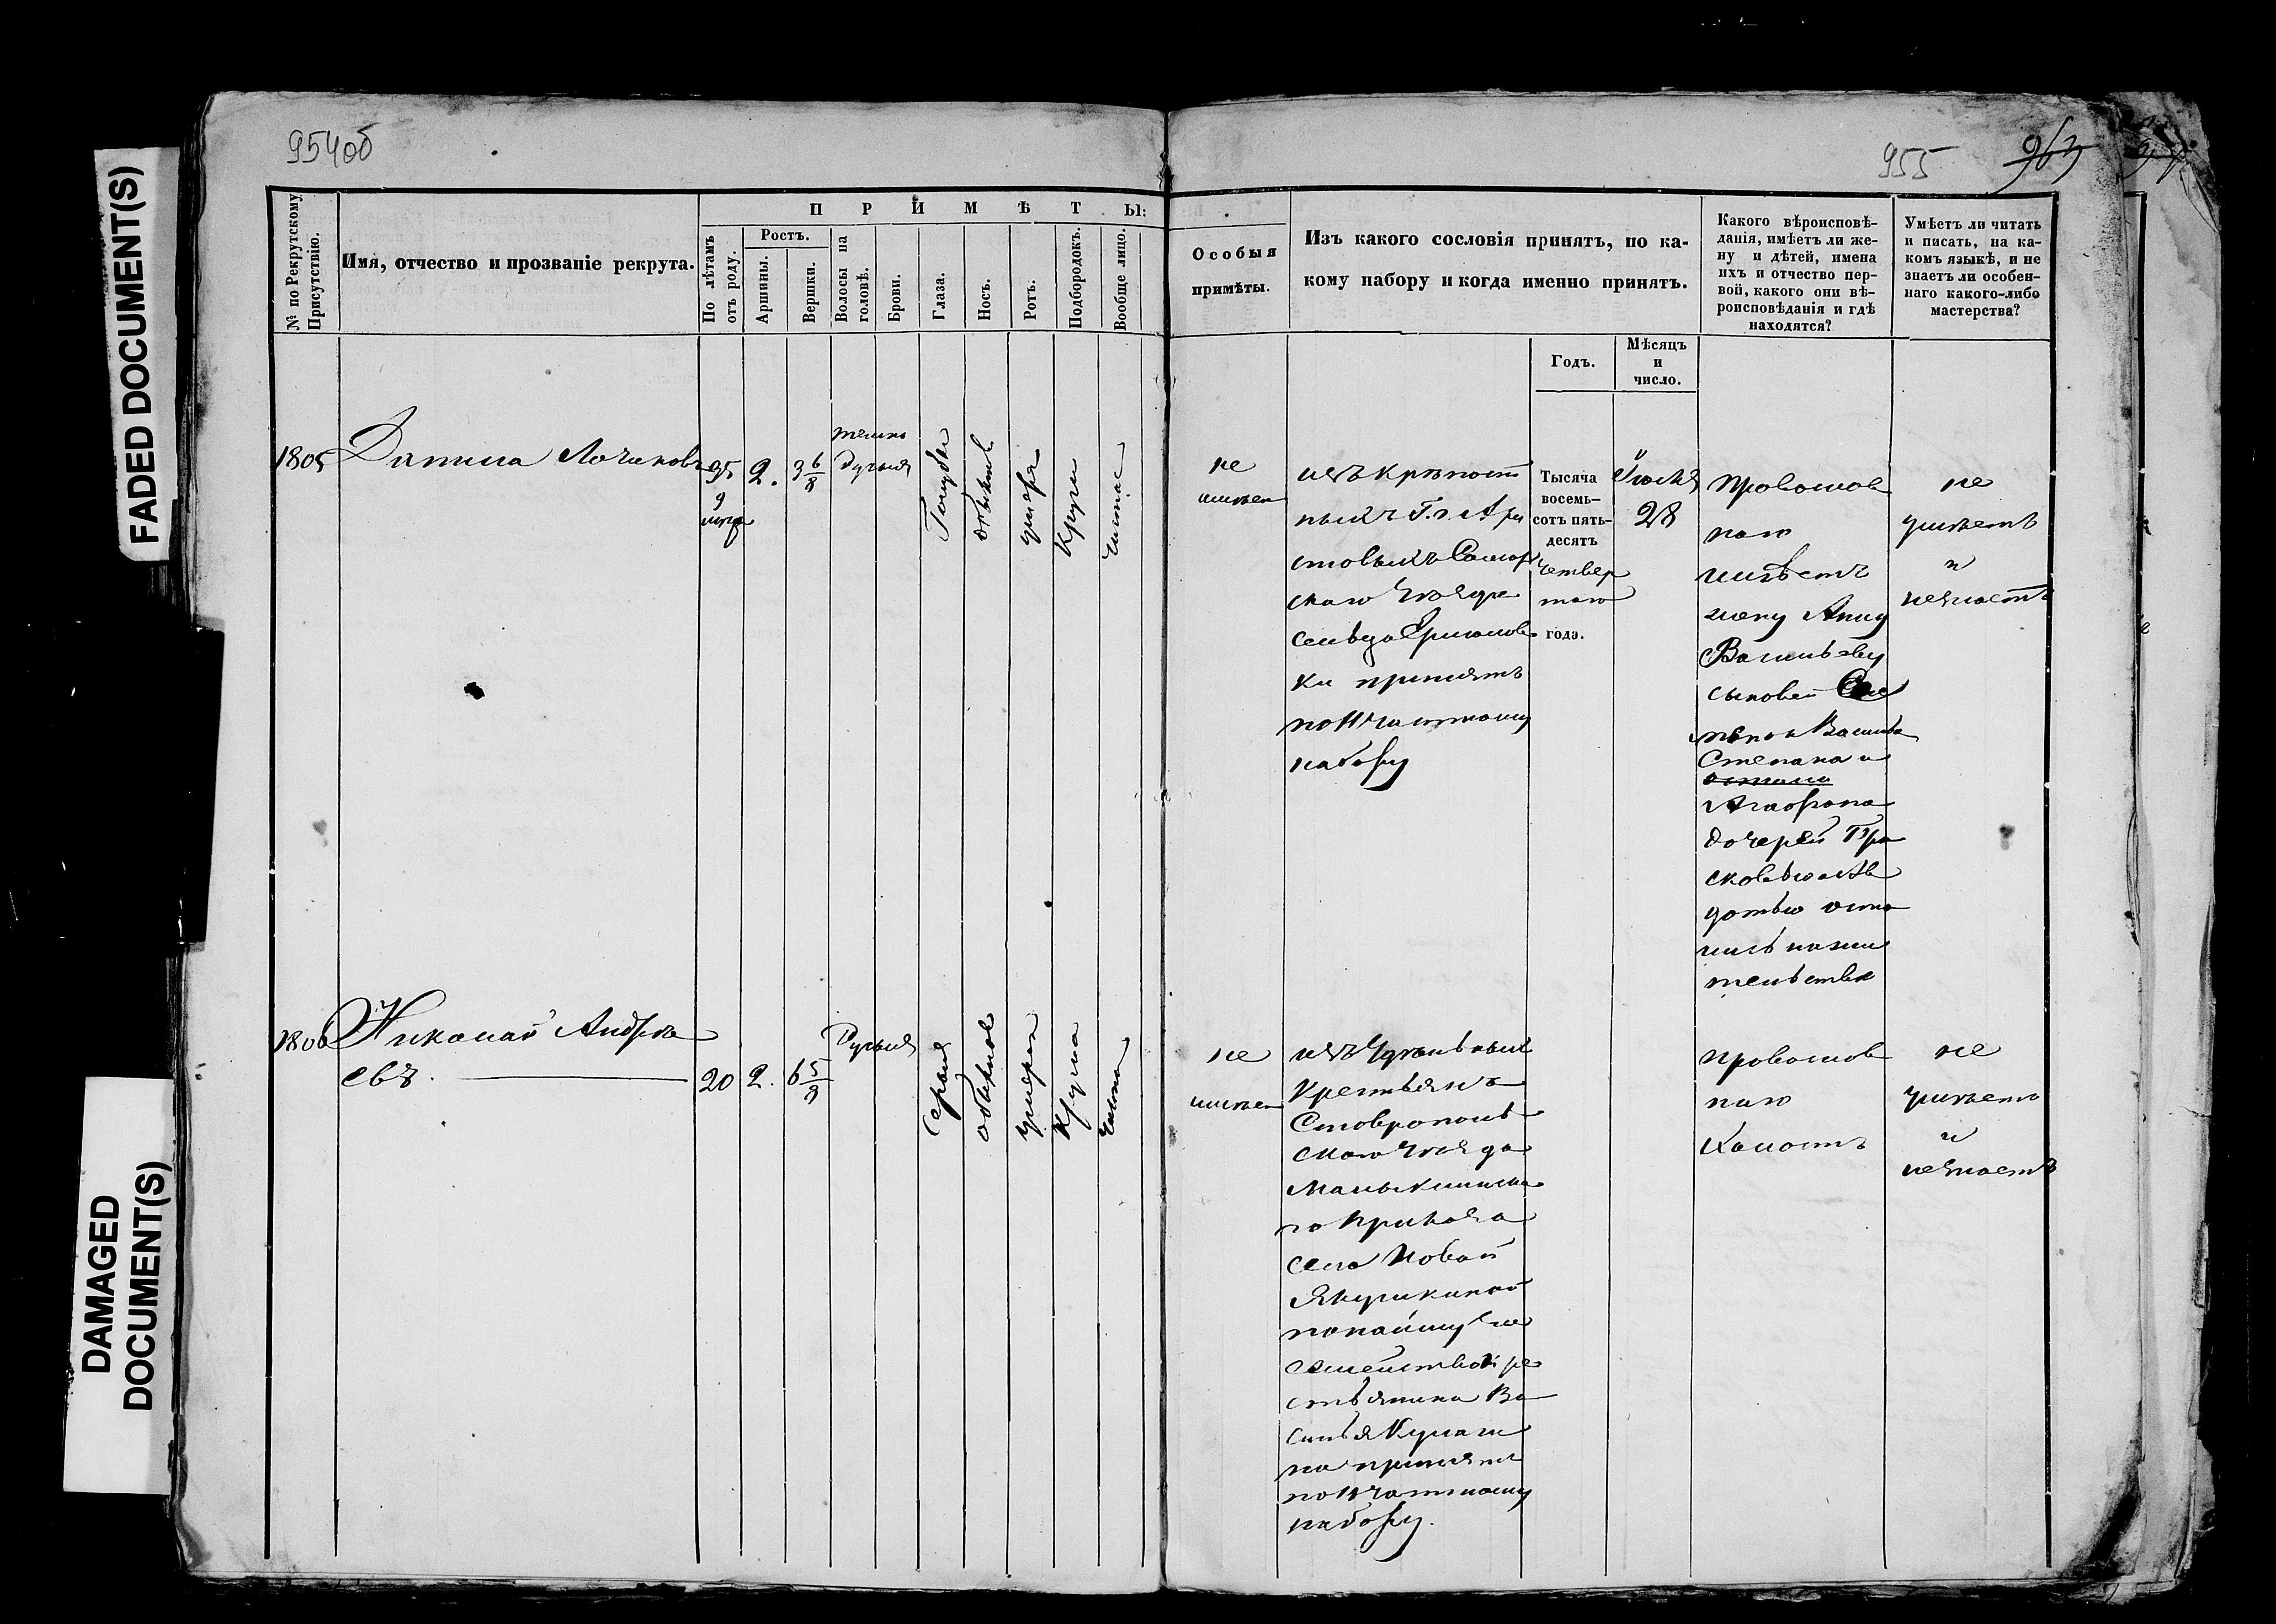 FADED DOCUMENT(S)
DAMAGED
DOCUMENT(S)
954об
955
963
№ по Рекрутскому
Присутствію.
Имя, отчество и прозваніе рекрута.
ПРИМѢТЫ:
По лѣтамъ
отъ роду.
Ростъ.
Аршины.
Вершки.
Волосы на
головѣ.
Брови.
Глаза.
Носъ.
Ротъ.
Подбородокъ.
Вообще лицо.
Особыя
примѣты.
Изъ какого сословія принятъ, по ка-
кому набору и когда именно принятъ.
Годъ.
Мѣсяцъ
и
число.
Какого вѣроисповѣ-
данія, имѣетъ ли же-
ну и дѣтей, имена
ихъ и отчество пер-
вой, какого они вѣ-
роисповѣданія и гдѣ
находятся?
Умѣетъ ли читать
и писать, на ка-
комъ языкѣ, и не
знаетъ ли особен-
наго какого-либо
мастерства?
1805
Данила
35
2.
3 6/8
темно
русыя
Голубы
умере
кругл
чистое
не
имеет
изъ крѣпост
ныхъ Г.г. Ари
стовыхъ Самар
скаго уѣзда
сельца Ермолов
ки принятъ
по 11 частному
набору
Тысяча
восемь-
сотъ пять-
десятъ
четвер
таго
года.
Іюля
28
православ
наго
имѣетъ
жену Анну
Васильеву
сыновей
Василья
Степана и
Агафона
дочерей Пра
сковью Ав
дотью оста
лись на жи
тельстве
не
умѣетъ
и
незнаетъ
1806
Николай Андре
евъ.
20
2.
6 5/8
Русыя
Серыя
обыкнов
умерен
кругла
чисто
не
имѣет
изъ Удѣльныхъ
Крестьянъ
Ставрополь
скаго уѣзда
Малыкинска
го Приказа
села Новой
Якушкиной
по найму за
семейство кре
стьянина Ва
силья Кулаги
на принятъ
по 11 частному
набору.
православ
наго
Холостъ
не
умѣетъ
и
незнаетъ